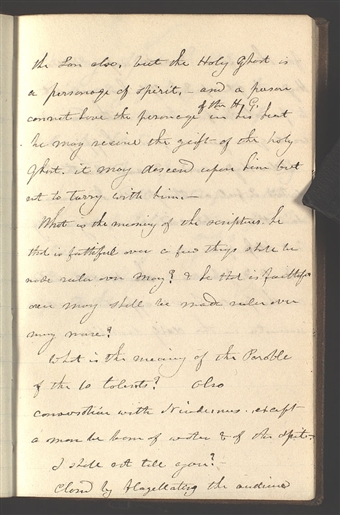 the Son also, but the Holy Ghost is
a personage of spirit, - and a person
cannot have the personage of the H. G. in his heart
he may receive the gift of the holy
Ghost. it may descend upon him but
not to tarry with him. -
What is the meaning of the scripture. he
that is faithful over a few things shall be
made ruler over many? & he that is faithful
over many shall be made ruler over
many more?
What is the meaning of the Parable
of the 10 talents? Also
conversation with Nicodemus. except
a man be born of water & of the spirit. -
I shall not tell you? -
Closed by flagellating the audience